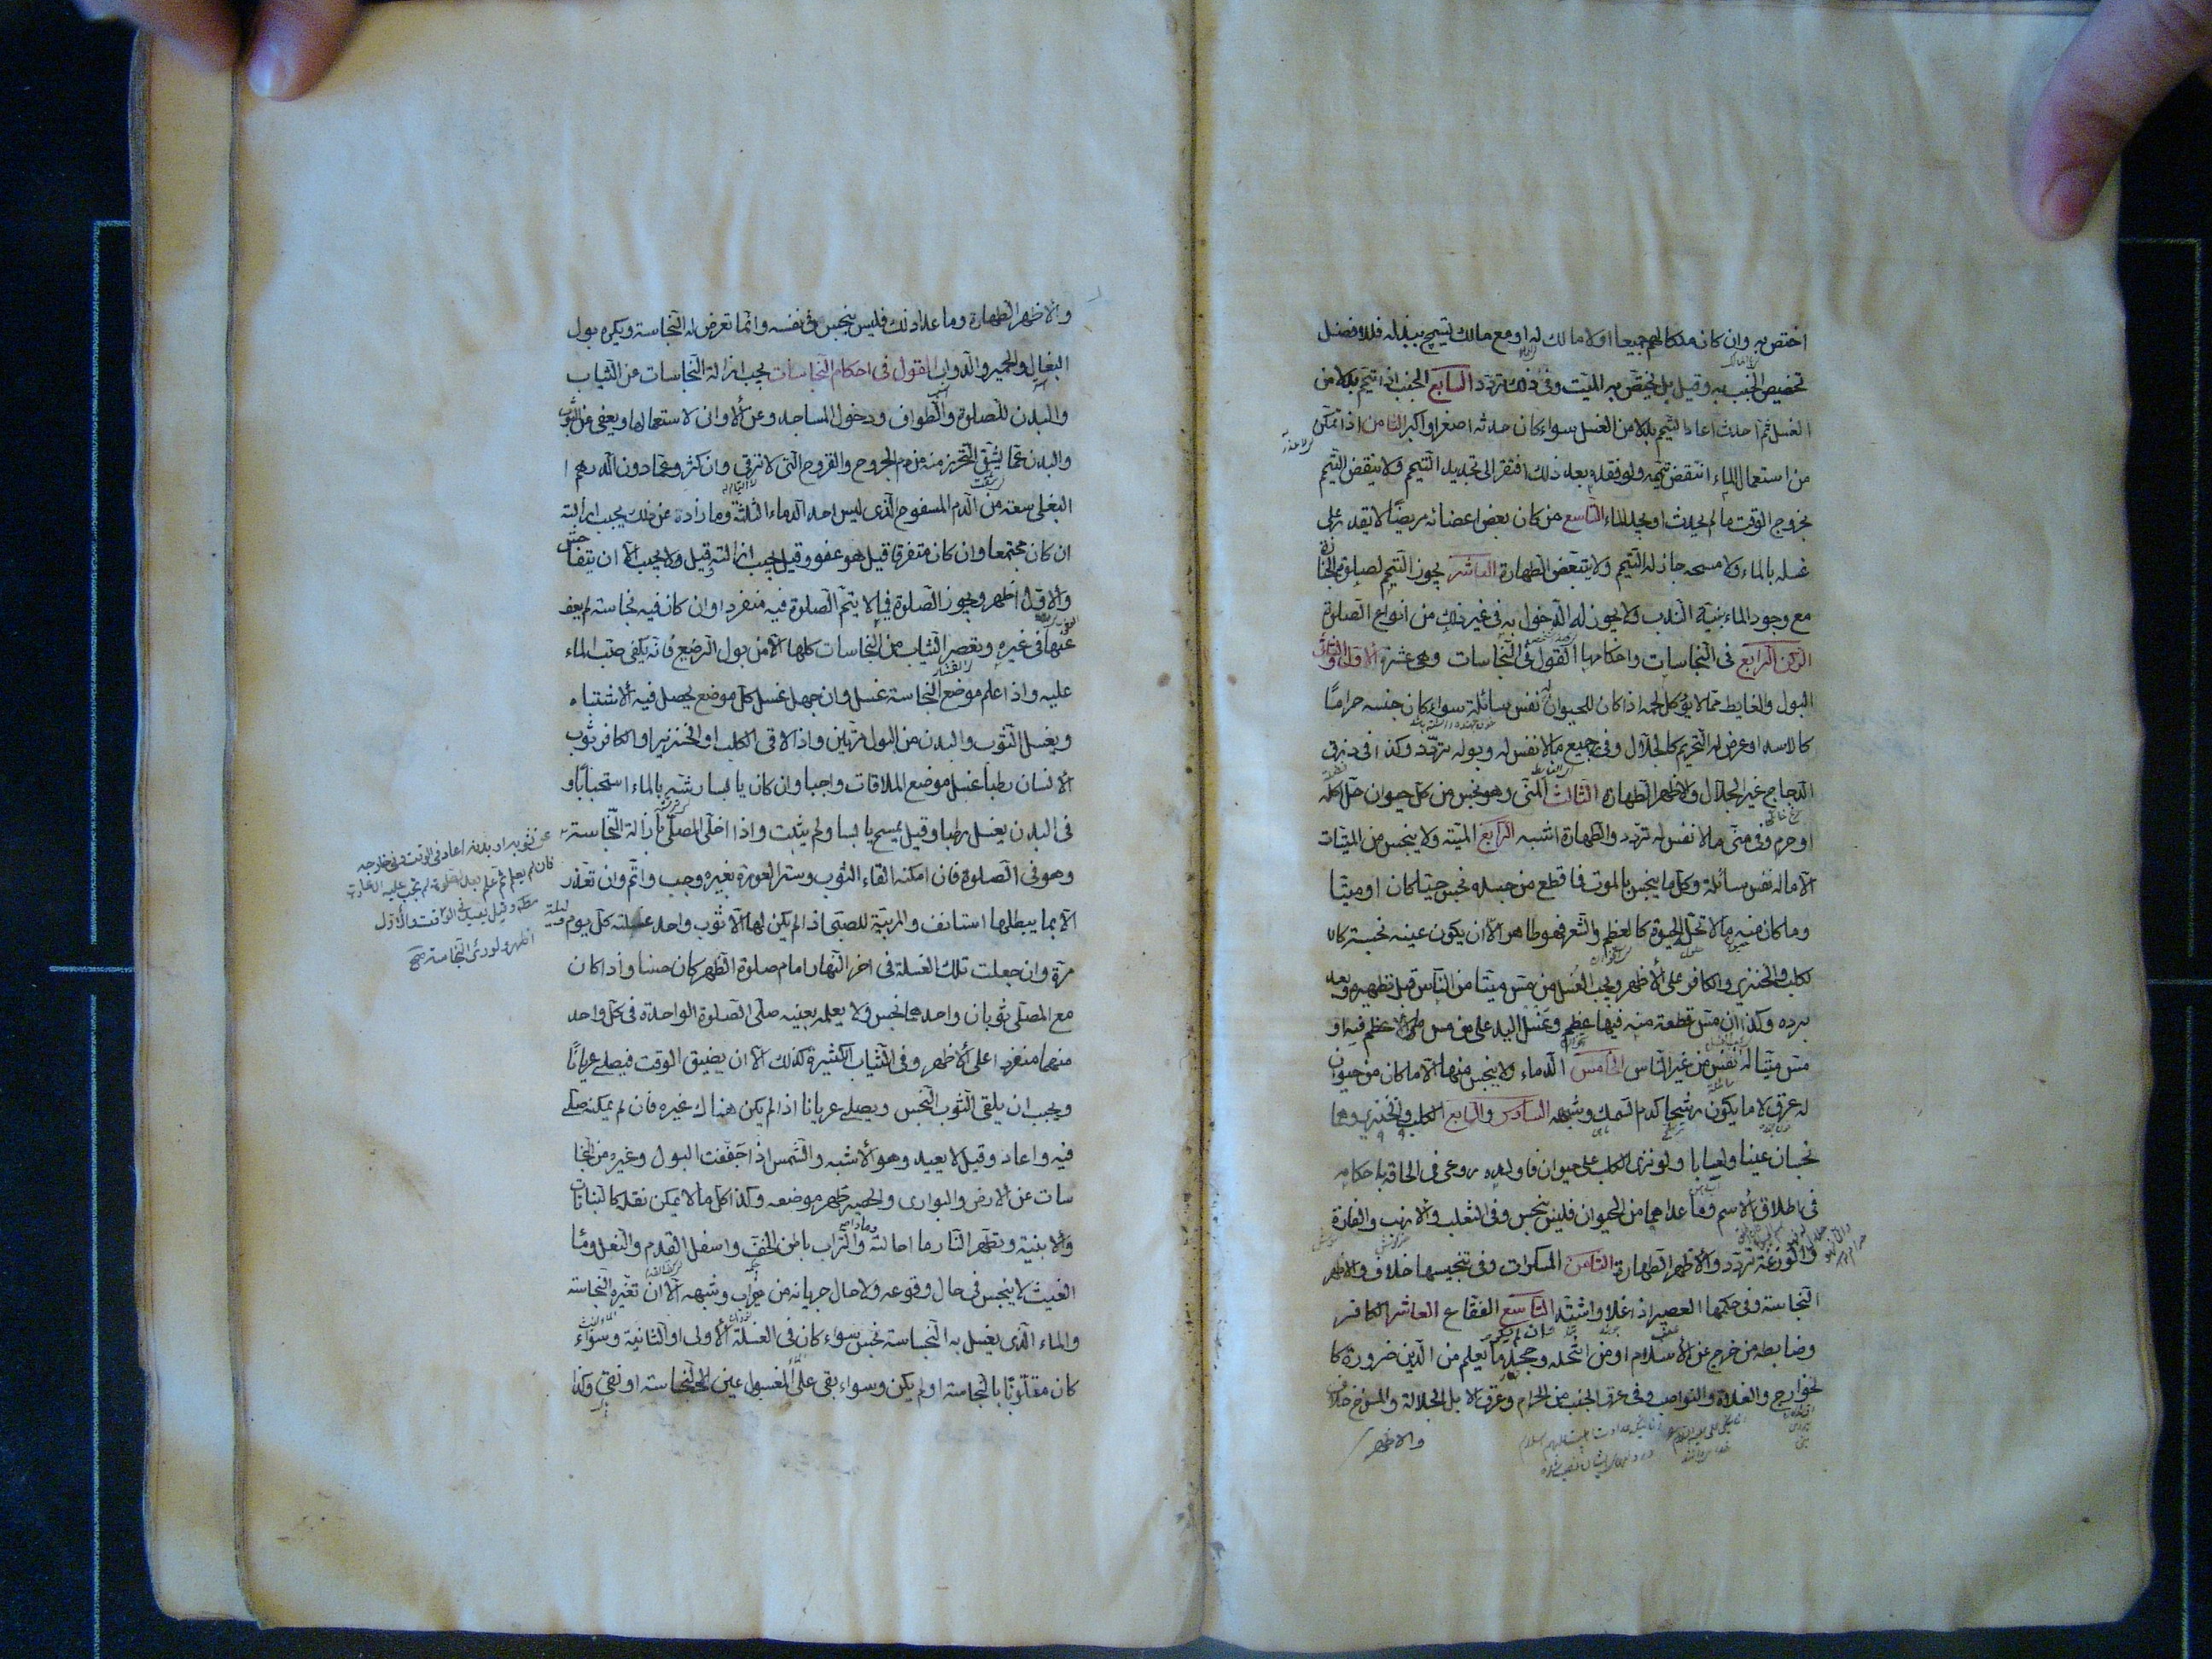 اختص به وان كان ملكا لهم جميعا او لا مالك له او مع مالك يسمح ببذله فالافضل
تخصيص الجنب به وقيل بل يختص به الميت وفى ذلك تردد السابع الجنب اذا تيمم بدلا من
الغسل ثم احدث اعاد التيمم بدلا من الغسل سواء كان حدثه اصغر او اكبر الثامن اذا تمكن
من استعمال الماء انتقض تيممه ولو فقده بعد ذلك افتقر الى تجديد التيمم ولا ينقض التيمم
بخروج الوقت ما لم يحدث او يجد الماء التاسع من كان بعض اعضائه مريضا لا يقدر على
غسله بالماء ولا مسحه جاز له التيمم ولا يتبعض الطهارة العاشر يجوز التيمم لصلوة الجنازة
مع وجود الماء بنية الندب ولا يجوز له الدخول به فى غير ذلك من انواع الصلوة
الركن الرابع فى النجاسات واحكامها القول فى النجاسات وهى عشرة الاول والثانى
البول والغايط مما لا يؤكل لحمه اذا كان للحيوان نفس سائلة سواء كان جنسه حراما
كالاسد او عرض له التحريم كالجلال وفى رجيع ما لا نفس له وبوله تردد وكذا فى ذرق
الدجاج غير الجلال والاظهر الطهارة الثالث المنى وهو نجس من كل حيوان حل اكله
او حرم وفى منى ما لا نفس له تردد والطهارة اشبه الرابع الميتة ولا ينجس من الميتات
الا ماله نفس سائلة وكل ما ينجس بالموت فما قطع من جسده نجس حيا كان او ميتا
وما كان منه ما لا تحل الحيوة كالعظم والشعر فهو طاهر الا ان يكون عينه نجسة كا
لكلب والخنزير والكافر على الاظهر ويجب الغسل من مس ميتا من الناس قبل تطهيره وبعد
برده وكذا ان مس قطعة منه فيها عظم وغسل اليد على من مس ما لا عظم فيه او
مس ميتا له نفس من غير الناس الخامس الدماء ولا ينجس منها الا ما كان من حيوان
له عرق لا ما يكون رشيحا كدم السمك وشبهه السادس والسابع الكلب والخنزير وهما
نجسان عينا ولعابا ولو نزى الكلب على حيوان فاولده روعى فى الحاقه باحكامه
فى اطلاق الاسم وما عداهما من الحيوان فليس بنجس وفى الثعلب والارنب والفارة
والوزغة تردد والاظهر الطهارة الثامن المسكرات وفى تنجيسها خلاف والاظهر
النجاسة وفى حكمها العصير اذا غلا واشتد التاسع الفقاع العاشر الكافر
وضابطه من خرج عن الاسلام او من انتحله وجحد ما يعلم من الدين ضرورة كا
لخوارج والغلاة والنواصب وفى عرق الجنب من الحرام وعرق الابل الجلالة والمسوخ خلاف
والاظهر
والاظهر الطهارة وما عدا ذلك فليس بنجس فى نفسه وانما تعرض له النجاسة ويكره بول
البغال والحمير والدواب القول فى احكام النجاسات يجب ازالة النجاسات عن الثياب
والبدن للصلوة والطواف ودخول المساجد وعن الاوان لاستعمالها ويعفى عن الثوب
والبدن عما يشق التحرز منه من دم الجروح والقروح التى لا ترقى وان كثر وعما دون الدرهم ا
البغلى سعة من الدم المسفوح الذى ليس احد الدماء الثلثة وما زاد عن ذلك يجب ازالته
ان كان مجتمعا وان كان متفرقا قيل هو عفو وقيل يجب ازالته وقيل ولا يجب الا ان يتفاحش
والاول اظهر ويجوز الصلوة فيما لا يتم الصلوة فيه منفردا وان كان فيه نجاسة لم يعف
عنها فى غيره وتعصر الثياب من النجاسات كلها الا من بول الرضيع فانه يكفى صب الماء
عليه واذا علم موضع النجاسة غسل وان جهل غسل كل موضع يحصل فيه الاشتباه
ويغسل الثوب والبدن من البول مرتين واذا لاقى الكلب او الخنزير او الكافر ثوب
الانسان رطبا غسل موضع الملاقات واجبا وان كان يابسا رشه بالماء استحبابا و
فى البدن يغسل رطبا وقيل يمسح يابسا ولم يثبت واذا اخل المصلى بازالة النجاسة
عن ثوبه او بدنه اعاد فى الوقت وفى خارجه
فان لم يعلم ثم علم بعد الصلوة لم تجب عليه الاعادة
مطلقا وقيل يعيد فى الوقت والاول
اظهر ولو رأى النجاسة صح
وهو فى الصلوة فان امكنه القاء الثوب وستر العورة بغيره وجب واتم وان تعذر
الا بما يبطلها استانف والمربية للصبى اذا لم يكن لها الا ثوب واحد غسلته كل يوم وليلة
مرة وان جعلت تلك الغسلة فى اخر النهار امام صلوة الظهر كان حسنا واذا كان
مع المصلى ثوبان واحدهما نجس ولا يعلمه بعينه صلى الصلوة الواحدة فى كل واحد
منهما منفردا على الاظهر وفى الثياب الكثيرة كذلك الا ان يضيق الوقت فيصلى عريانا
ويجب ان يلقى الثوب النجس ويصلى عريانا اذا لم يكن هناك غيره فان لم يمكنه صلى
فيه واعاد وقيل لا يعيد وهو الاشبه والشمس اذا جففت البول وغيره من النجا
سات عن الارض والبوارى والحصر طهر موضعه وكذا كل ما لا يمكن نقله كالنباتات
والابنية وتطهر النار ما احالته والتراب باطن الخف واسفل القدم والنعل وماء
الغيث لا ينجس فى حال وقوعه ولا حال جريانه من ميزاب وشبهه الا ان تغيره النجاسة
والماء الذى يغسل به النجاسة نجس سواء كان فى الغسلة الاولى او الثانية وسواء
كان متلوثا بالنجاسة او لم يكن وسواء بقى على المغسول عين النجاسة او نقى وكذا